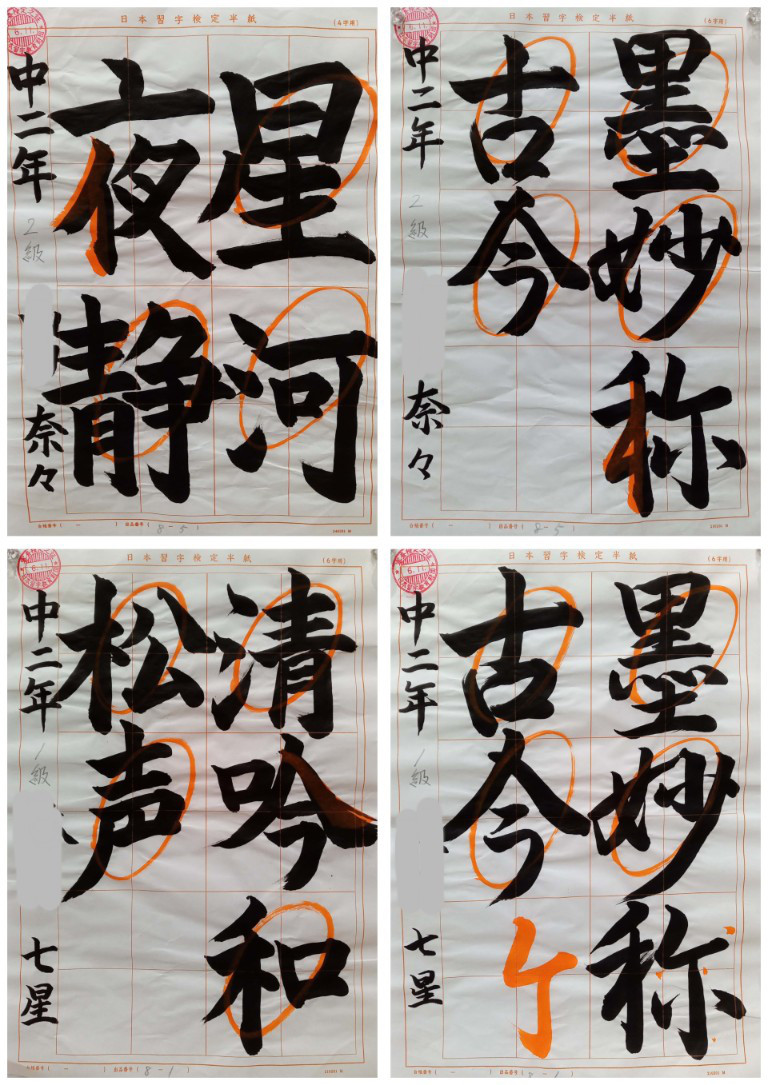 日本習字検定半紙
(4字用)
星河
夜静
中二年
2級
奈々
段級番号( - )
出品番号( 8-5 )
日本習字検定半紙
(6字用)
墨妙称
古今
中二年
2級
奈々
出品番号( 8-5 )
日本習字検定半紙
(6字用)
清吟和
松声
中二年
1級
七星
出品番号( 8-1 )
日本習字検定半紙
(6字用)
墨妙称
古今
中二年
1級
七星
出品番号( 8-1 )